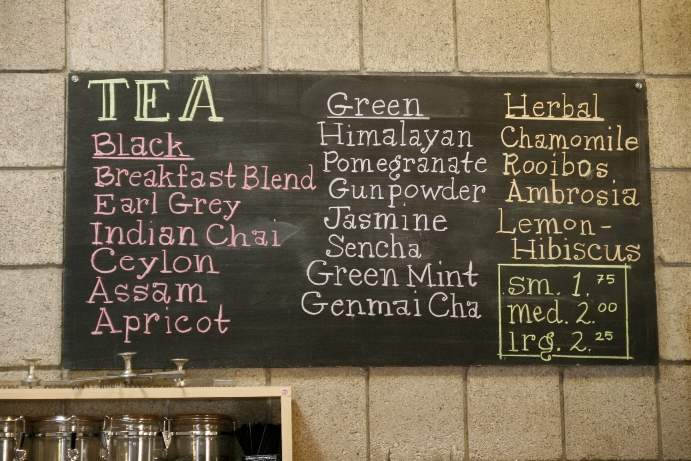 TEA
Black
Breakfast Blend
Earl Grey
Indian Chai
Ceylon
Assam
Apricot
Green
Himalayan
Pomegranate
Gunpowder
Jasmine
Sencha
Green Mint
Genmai Cha
Herbal
Chamomile
Rooibos
Ambrosia
Lemon-
Hibiscus
sm. 1.75
med. 2.00
lrg. 2.25